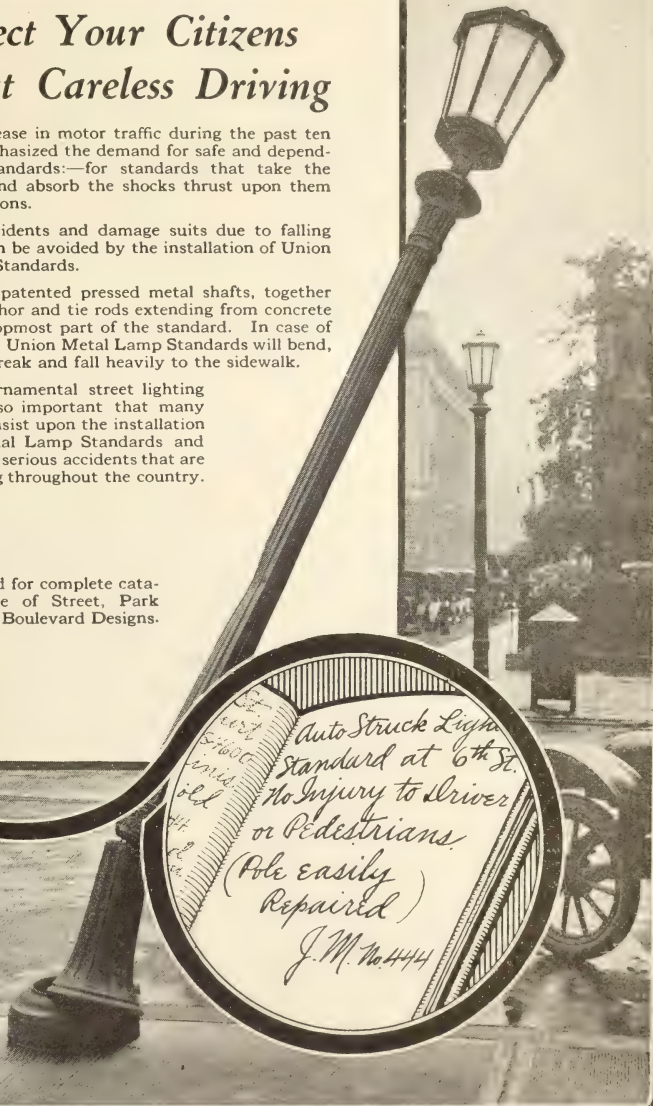 ect Your Citizens
t Careless Driving
ease in motor traffic during the past ten
hasized the demand for safe and depend-
andards:—for standards that take the
nd absorb the shocks thrust upon them
ons.
idents and damage suits due to falling
n be avoided by the installation of Union
Standards.
patented pressed metal shafts, together
hor and tie rods extending from concrete
opmost part of the standard. In case of
Union Metal Lamp Standards will bend,
reak and fall heavily to the sidewalk.
rnamental street lighting
so important that many
nsist upon the installation
al Lamp Standards and
serious accidents that are
g throughout the country.
d for complete cata-
e of Street, Park
Boulevard Designs.
Auto Struck Ligh
Standard at 6th St.
No Injury to Driver
or Pedestrians.
(Pole easily
Repaired)
J.M. No. 444
old